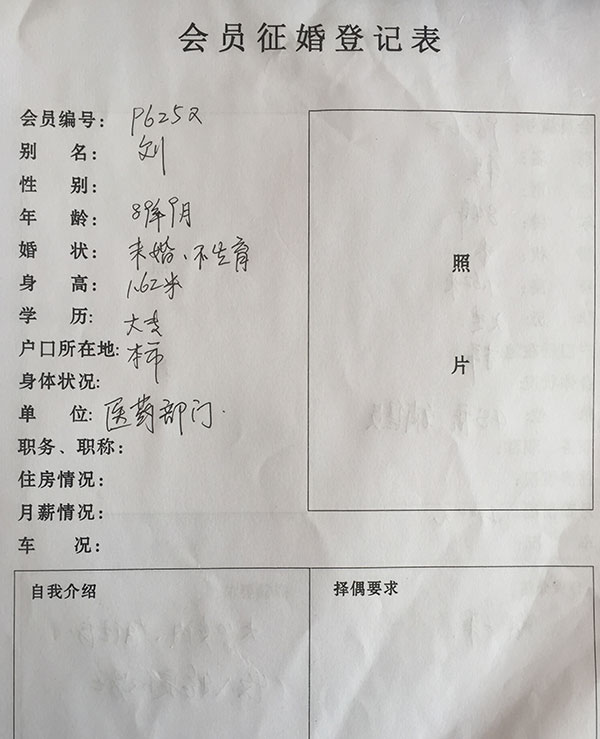 会员征婚登记表
会员编号: P625又
别 名: 刘
性 别:
年 龄: 89年9月
婚 状: 未婚、不生育
身 高: 1.62米
学 历: 大专
户口所在地: 本市
身体状况:
单 位: 医药部门.
职务、职称:
住房情况:
月薪情况:
车 况:
照
片
自我介绍
择偶要求